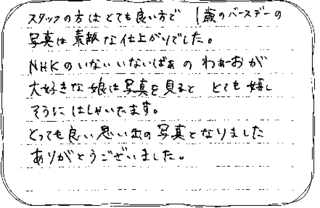 スタッフの方はとても良い方で 1歳のバースデーの
写真は素敵な仕上がりでした。
NHKのいないいないばぁの わぉーおが
大好きな娘は写真を見ると とても嬉し
そうにはしゃいでます。
とっても良い思い出の写真となりました
ありがとうございました。